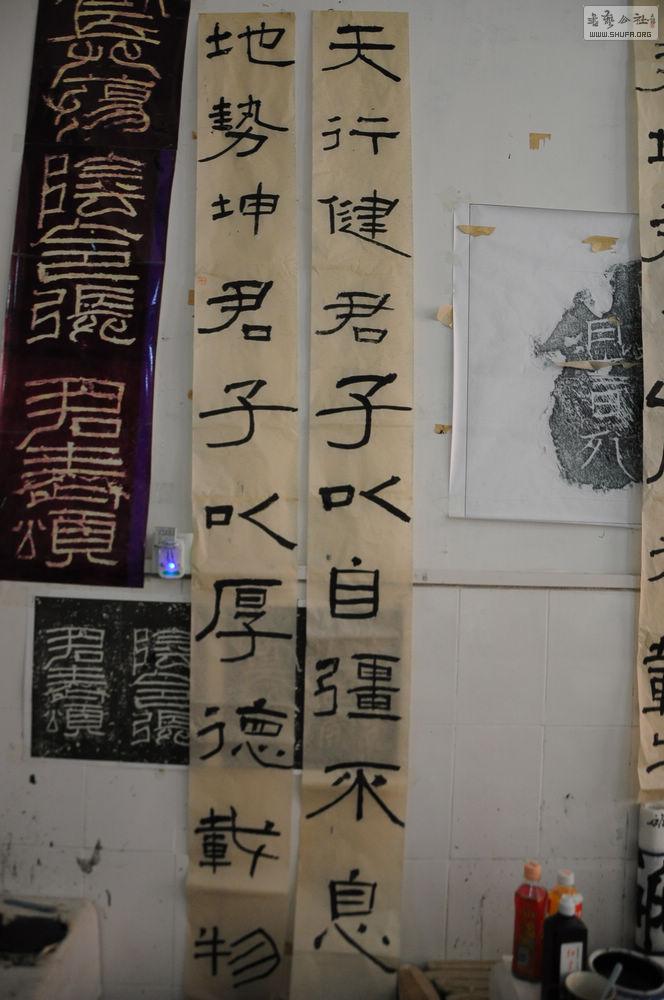 書藝公社
WWW.SHUFA.ORG
天行健君子以自彊不息
地勢坤君子以厚德載物
長蕩陰令張君表頌
陰令張
君表頌